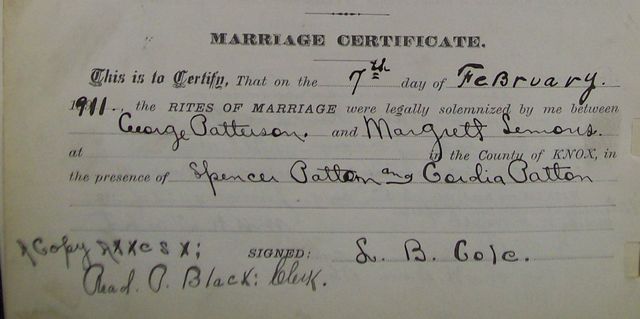 MARRIAGE CERTIFICATE.
This is to Certify, That on the 7th day of February.
1911.., the RITES OF MARRIAGE were legally solemnized by me between
George Patterson. and Margrett Lemons.
at in the County of KNOX, in
the presence of Spencer Patton and Cordia Patton
SIGNED: L. B. Cole.
Copy
Chad. P. Black: Clerk.